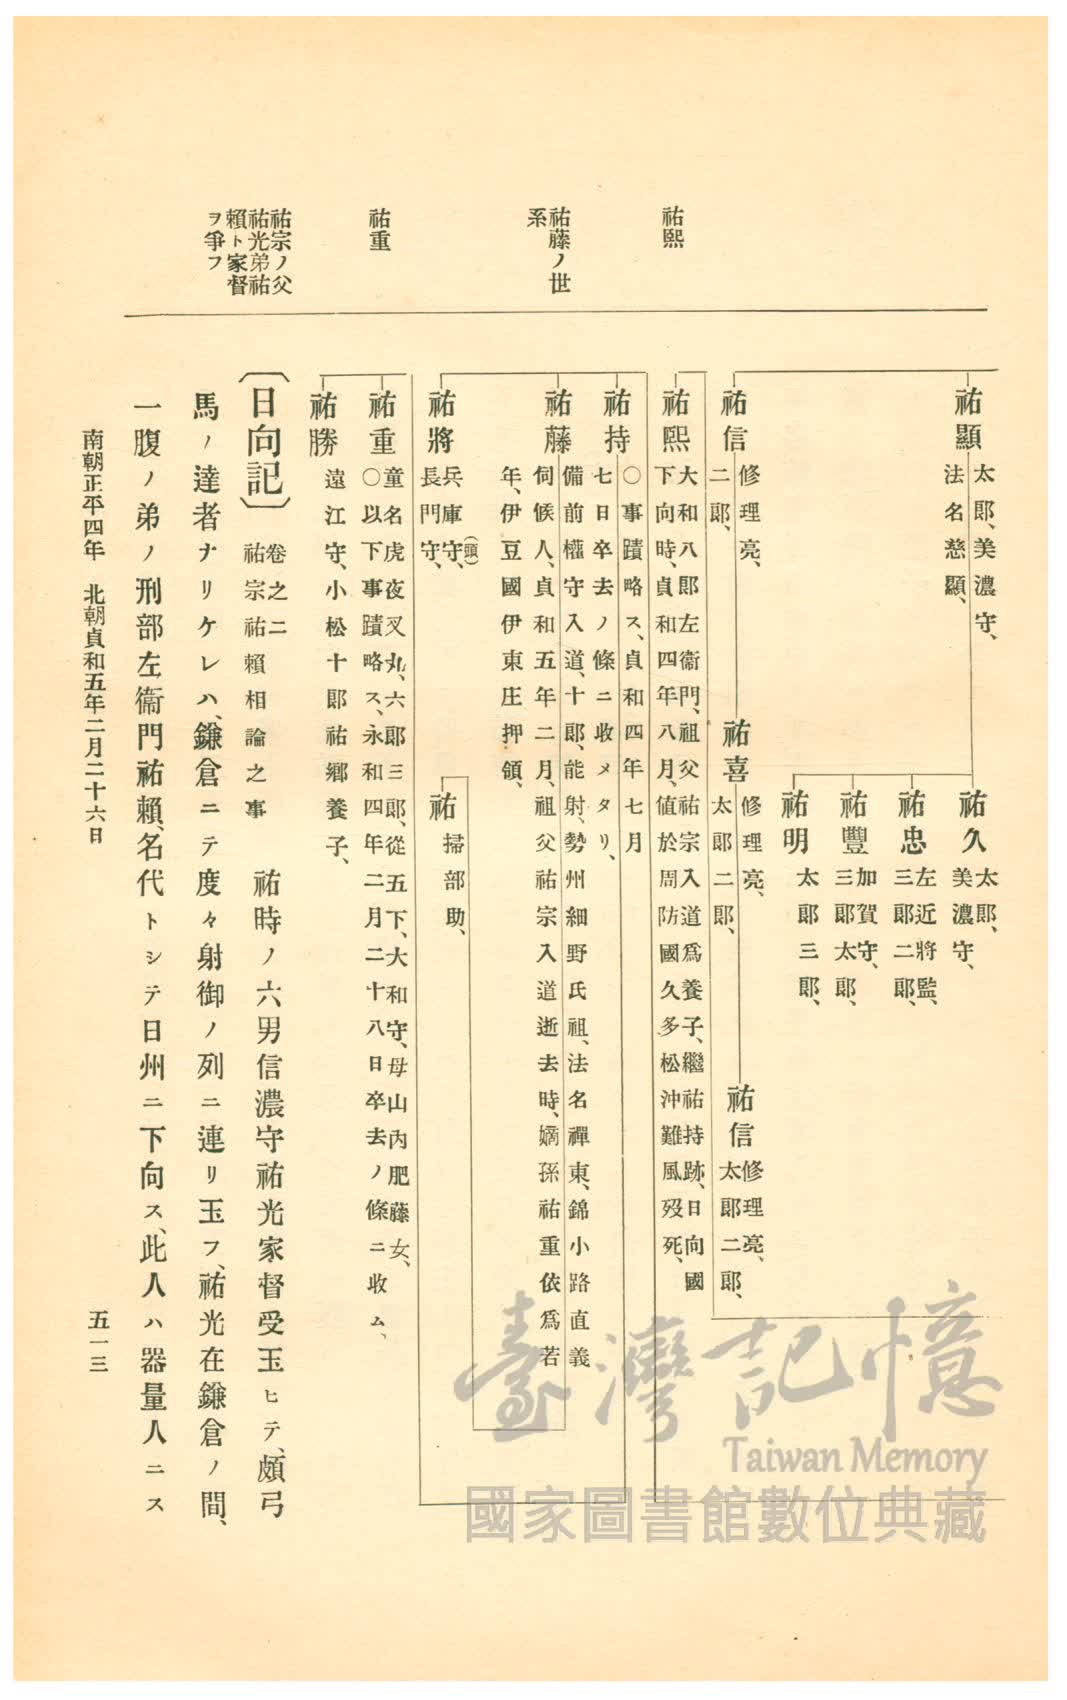 祐熙
祐藤ノ世
系
祐重
祐宗ノ父
祐光弟祐
賴ト家督
ヲ爭フ
祐顯
太郎、美濃守、
法名慈顯、
祐久
太郎、
美濃守、
祐忠
左近將監、
三郎二郎、
祐豐
加賀守、
三郎太郎、
祐明
太郎三郎、
祐信
修理亮、
二郎、
祐喜
修理亮、
太郎二郎、
祐信
修理亮、
太郎二郎、
祐熙
大和八郎左衞門、祖父祐宗入道爲養子、繼祐持跡、日向國
下向時、貞和四年八月、値於周防國久多松沖難風歿死、
祐持
〇事蹟略ス、貞和四年七月
七日卒去ノ條ニ收メタリ、
祐藤
備前權守入道、十郎、能射、勢州細野氏祖、法名禪東、錦小路直義
伺候人、貞和五年二月、祖父祐宗入道逝去時、嫡孫祐重依爲若
年、伊豆國伊東庄押領、
祐
掃部助、
祐將
兵庫守、(頭)
長門守、
祐重
童名虎夜叉丸、六郎三郎、從五下、大和守、母山內肥藤女、
〇以下事蹟略ス、永和四年二月二十八日卒去ノ條ニ收ム、
祐勝
遠江守、小松十郎祐鄉養子、
〔日向記〕
卷之二
祐宗祐賴相論之事
祐時ノ六男信濃守祐光家督受玉ヒテ、頗弓
馬ノ達者ナリケレハ、鎌倉ニテ度々射御ノ列ニ連リ玉フ、祐光在鎌倉ノ間、
一腹ノ弟ノ刑部左衞門祐賴、名代トシテ日州ニ下向ス、此人ハ器量人ニス
南朝正平四年　北朝貞和五年二月二十六日
五一三
臺灣記憶
Taiwan Memory
國家圖書館數位典藏